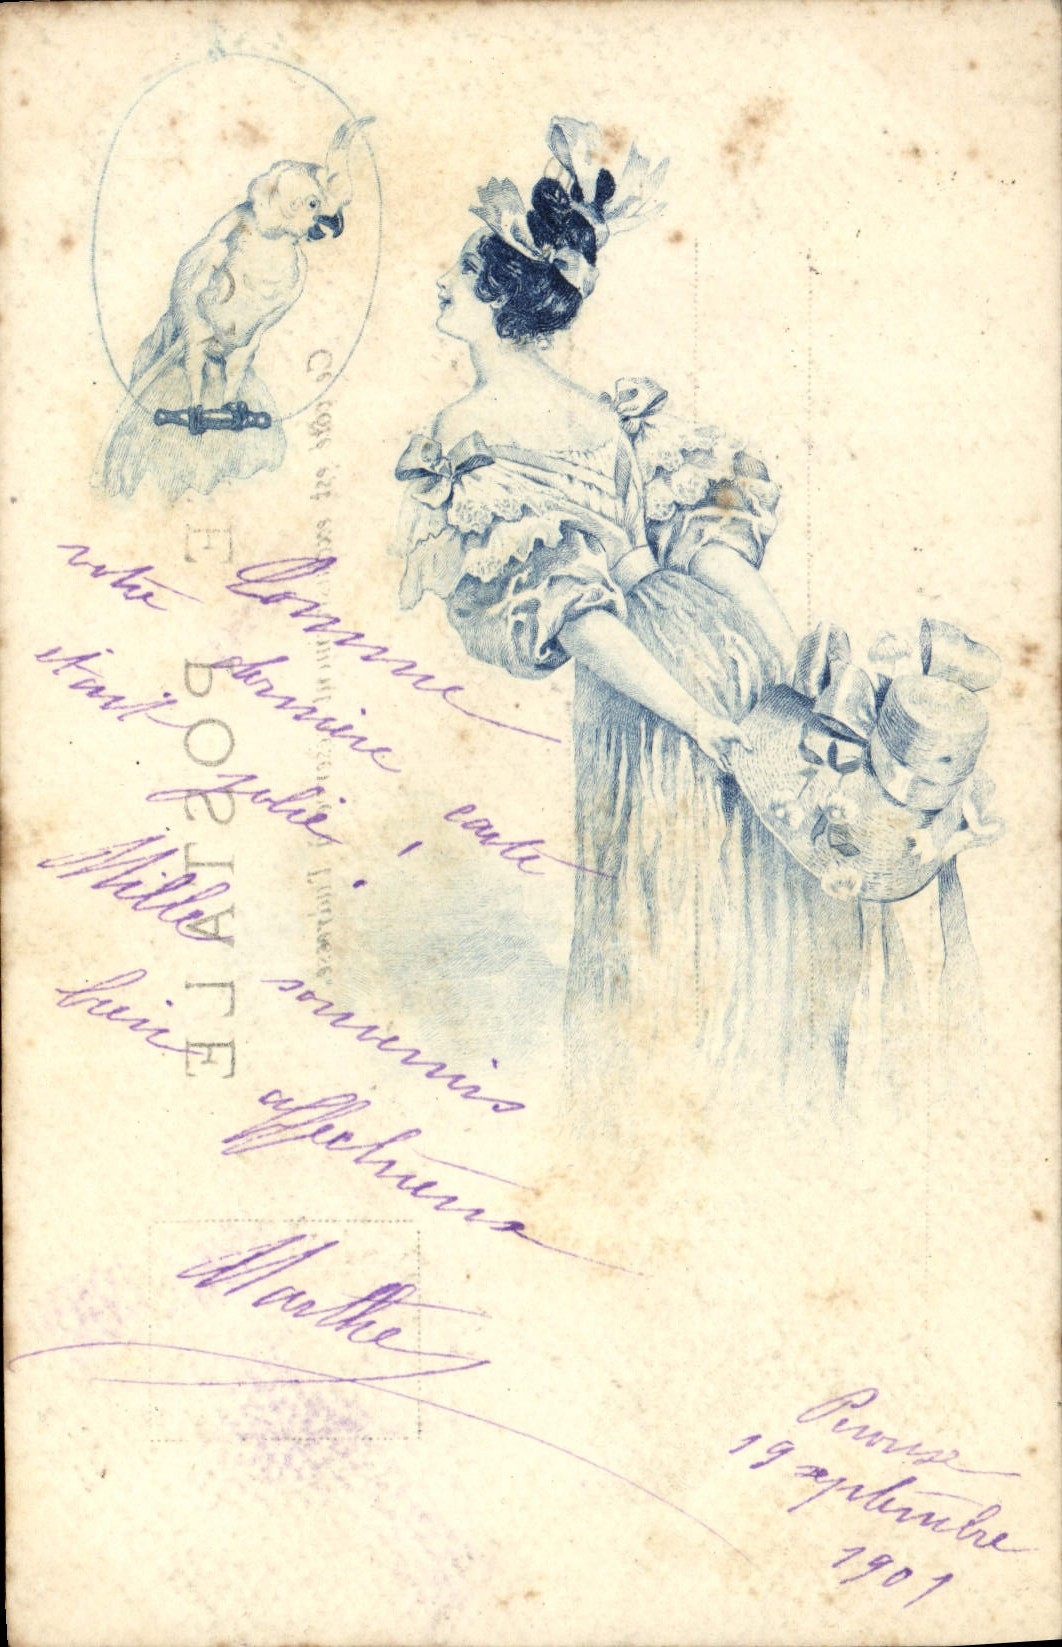 Comme
votre dernière carte
était jolie !
Milles souvenirs
bien affectueux
Marthe
Peroux
19 septembre
1901
CARTE POSTALE